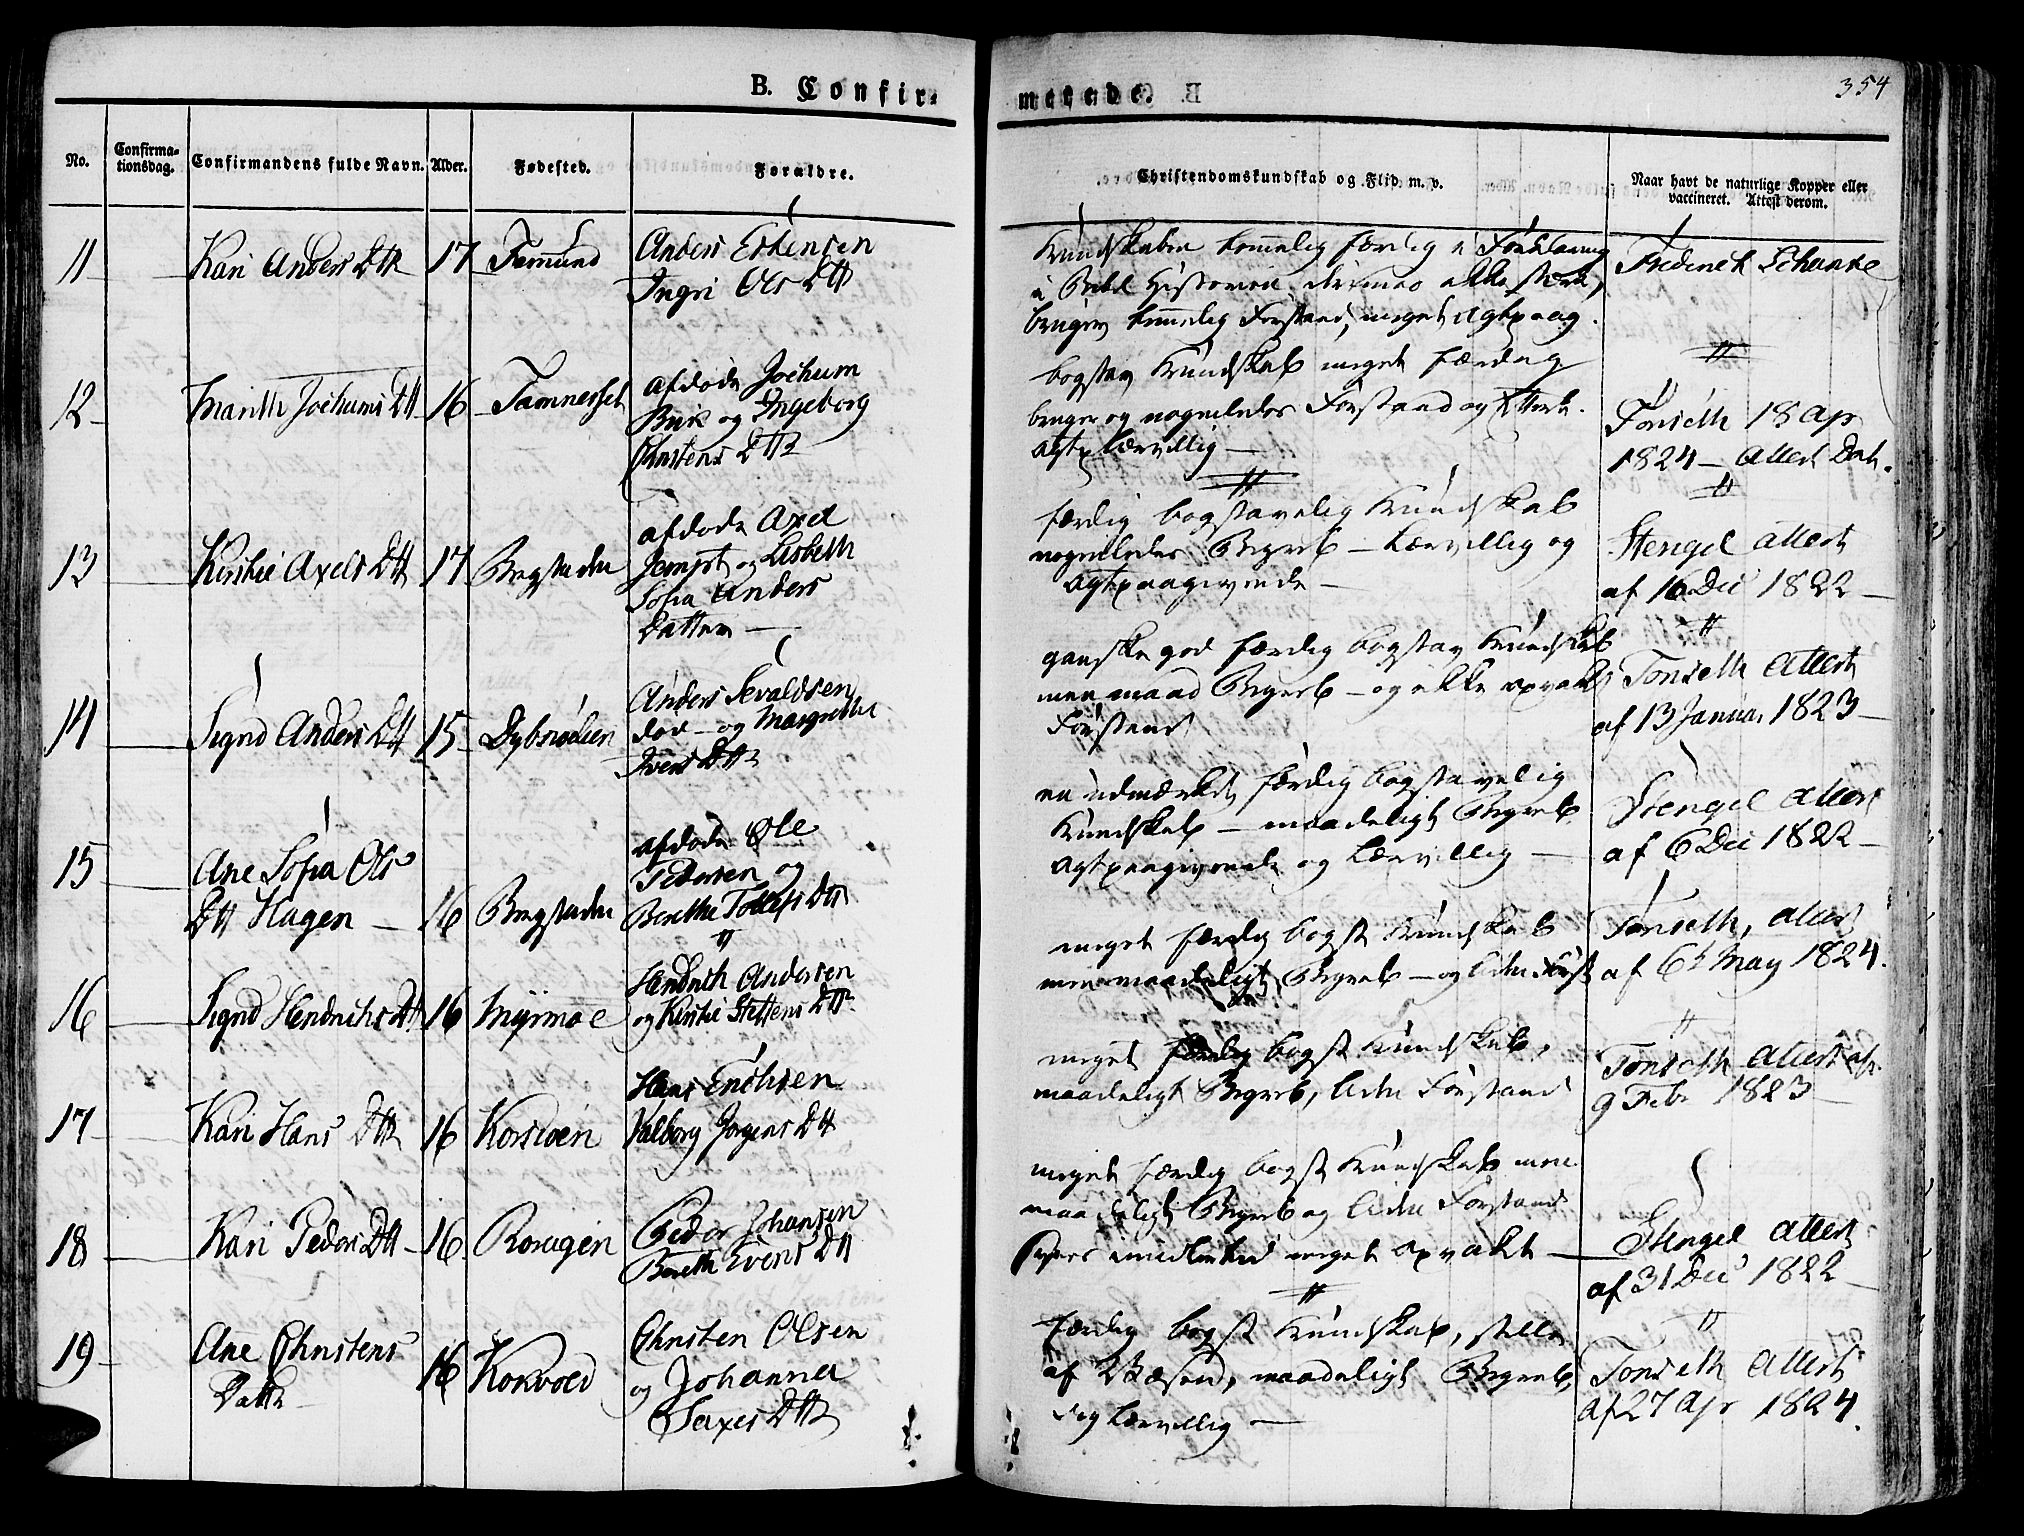 B. Confir-
merede.
354
No.
Confirma-
tionsdag.
Confirmandens fulde Navn.
Alder.
Fødested.
Forældre.
Christendomskundskab og Flid m. v.
Naar havt de naturlige Kopper eller
vaccineret. Attest derom.
11
Kari Anders Dtt
17
Fæmund
Anders Eskensen
Ingri Ols Dtt
Kundskaben temmelig færdig i Forklaring
i Bibel Historien derimod ikke stærk,
bruger temmelig Forstand, meget agtpaag.
Frederik Schanke
12
Marith Jochums Dtt
16
Tamnesset
afdøde Jochum
Busk og Ingeborg
Christens Dtt
bogstav Kundskab meget færdig
bruger og nogenledes Forstand og
agtp lærvillig
Tonseth 18 Apr
1824 — Attest Dat.
13
Kirstie Axels Dtt
17
Bergstaden
afdøde Axel
Jempt og Lisbeth
Sofia Anders
Datter
færdig bogstavelig Kundskab
nogenledes Begreb — Lærvillig og
Agtpaagivende —
Stengel attest
af 16 Dec 1822 —
14
Sigrid Anders Dtt
15
Dybsiøelien
Anders Sevaldsen
død — og Margrethe
Ivers Dtt
ganske god færdig bogstav Kundskab
men maad Begreb — og ikke opvakt
Forstand
Tonseth Attest
af 13 Januar 1823 —
15
Ane Sofia Ols
Dtt Hagen —
16
Bergstaden
afdøde Ole
Pedersen og
Berethe Tollefs Dtt
en udmærket færdig bogstavelig
Kundskab — maadeligt Begreb,
Agtpaagivende og Lærvillig —
Stengel attest
af 6 Dec 1822 —
16
Sigrid Hendrichs Dtt
16
Myrmoe
Hendrich Andersen
og Kirstie Steffens Dtt
meget færdig bogst Kundskab
men maadeligt Begreb — og liden Forst
Tonseth, attest
af 6t May 1824.
17
Kari Hans Dtt
16
Korsvoen
Hans Erichsen
Valborg Jørgens Dtt
meget færdig bogst Kundskab,
maadeligt Begreb, liden Forstand
Tonseth Attest af
9 Febr 1823 —
18
Kari Peders Dtt
16
Rørvigen
Peder Johansen
Bereth Evens Dtt
meget færdig bogst Kundskab men
maadeligt Begreb og liden Forstand
meget opvakt
Stengel attest
af 31 Dec 1822 —
19
Ane Christens
Dattr
16
Kokvold
Christen Olsen
og Johanna
Saxes Dtt
færdig bogst Kundskab, stille
af Væsen, maadeligt Begreb,
dog lærvillig —
Tonseth Attest
af 27 Apr 1824.